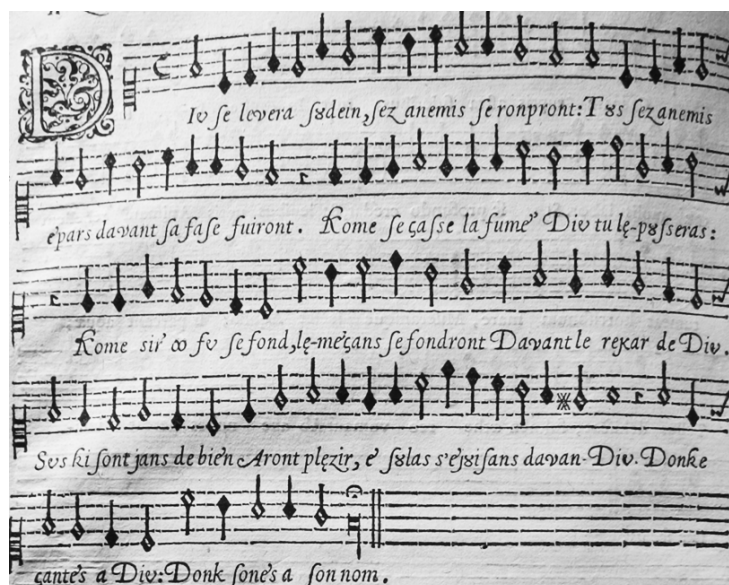 DIv se levera sȣdein, sez anemis se ronpront: Tȣs sez anemis
epars davant sa fase fuiront. Kome se çasse la fume' Div tu lę-pȣsseras:
Kome sir' ꝏ fv se fond, lę-meçans se fondront Davant le regar de Div.
Sevs ki sont jans de bien Aront plęzir, e sȣlas s'ejȣisans davan-Div. Donke
çantes a Div: Donk sones a son nom.